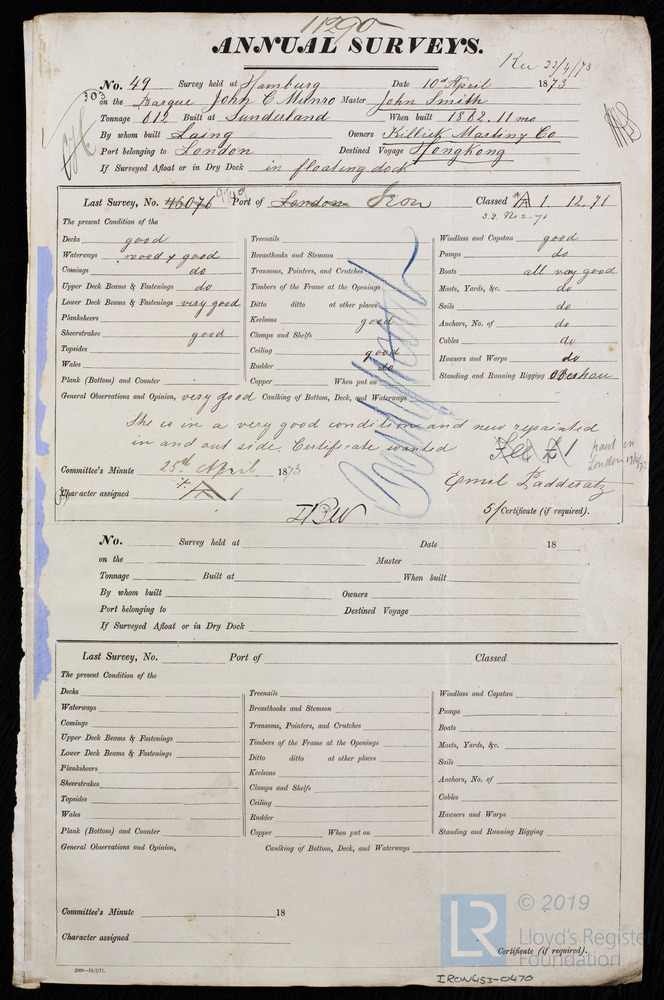 11290
ANNUAL SURVEYS.
Rec 22/4/73
No. 49 Survey held at Hamburg Date 10th April 1873
303
on the Barque John C Munro Master John Smith
Tonnage 612 Built at Sunderland When built 1862. 11 mo
By whom built Laing Owners Killick Martin y Co
Port belonging to London Destined Voyage Hongkong
If Surveyed Afloat or in Dry Dock in floating dock
Last Survey, No. 45076 Port of London Iron Classed A 1. 12.71
S.S. No 2-71
The present Condition of the
Decks good Treenails Windlass and Capstan good
Waterways wood & good Breasthooks and Stemson Pumps do
Comings do Transoms, Pointers, and Crutches Boats all very good
Upper Deck Beams & Fastenings do Timbers of the Frame at the Openings Masts, Yards, &c. do
Lower Deck Beams & Fastenings very good Ditto ditto at other places Sails do
Planksheers Keelsons good Anchors, No. of do
Sheerstrakes good Clamps and Shelfs Cables do
Topsides Ceiling good Hawsers and Warps do
Wales Rudder do Standing and Running Rigging
Plank (Bottom) and Counter Copper When put on
General Observations and Opinion, very good Caulking of Bottom, Deck, and Waterways
She is in a very good condition and new repainted
in and out side. Certificate wanted
A 1
paid in
London
Committee's Minute 25th April 1873
Emil Padderatz
Character assigned A 1
5/ Certificate (if required).
No. Survey held at Date 18
on the Master
Tonnage Built at When built
By whom built Owners
Port belonging to Destined Voyage
If Surveyed Afloat or in Dry Dock
Last Survey, No. Port of Classed
The present Condition of the
Decks Treenails Windlass and Capstan
Waterways Breasthooks and Stemson Pumps
Comings Transoms, Pointers, and Crutches Boats
Upper Deck Beams & Fastenings Timbers of the Frame at the Openings Masts, Yards, &c.
Lower Deck Beams & Fastenings Ditto ditto at other places Sails
Planksheers Keelsons Anchors, No. of
Sheerstrakes Clamps and Shelfs Cables
Topsides Ceiling Hawsers and Warps
Wales Rudder Standing and Running Rigging
Plank (Bottom) and Counter Copper When put on
General Observations and Opinion, Caulking of Bottom, Deck, and Waterways
Committee's Minute 18
Character assigned
Certificate (if required).
LR © 2019
Lloyd's Register
Foundation
IRON453-0470